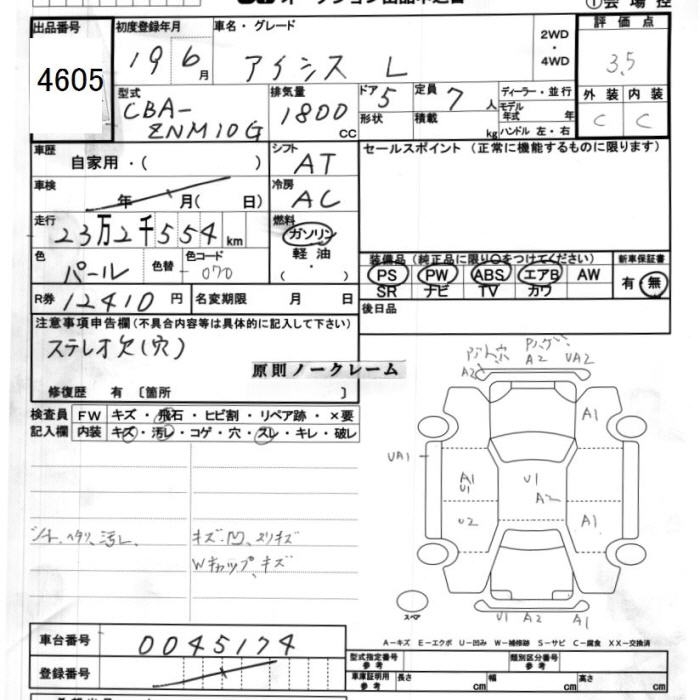 ①会場控
出品番号
4605
初度登録年月
19 6月
車名・グレード
アイシス L
2WD
・
4WD
評価点
3.5
外装 内装
C C
型式
CBA-
ZNM10G
排気量
1800 CC
ドア 5
形状
定員 7 人
積載 kg
ディーラー・並行
モデル
年式 年
ハンドル 左・右
車歴
自家用・( )
シフト
AT
セールスポイント (正常に機能するものに限ります)
車検
年 月( 日)
冷房
AC
走行
23万2千554km
燃料
ガソリン
軽油
・
( )
色
パール
色替
色コード
070
装備品 (純正品に限り○をつけてください)
PS PW ABS エアB AW
SR ナビ TV カワ
新車保証書
有・無
R券 12410 円
名変期限 月 日
後日品
注意事項申告欄 (不具合内容等は具体的に記入して下さい)
ステレオ欠(穴)
原則ノークレーム
修復歴 有 〔箇所 〕
検査員
記入欄
FW キズ・飛石・ヒビ割・リペア跡・×要
内装 キズ・汚レ・コゲ・穴・スレ・キレ・破レ
シート、ヘタリ、汚レ
キズ、凹、スリキズ
Wキャップ、キズ
A2
A2 UA2
A1
UA1
A1
U1
U1
A2
U2
A1
スペア
U1 A2 A1
A-キズ E-エクボ U-凹み W-補修跡 S-サビ C-腐食 XX-交換済
車台番号
0045174
登録番号
型式指定番号
参考
類別区分番号
参考
車庫証明用
参考
長さ cm 幅 cm 高さ cm